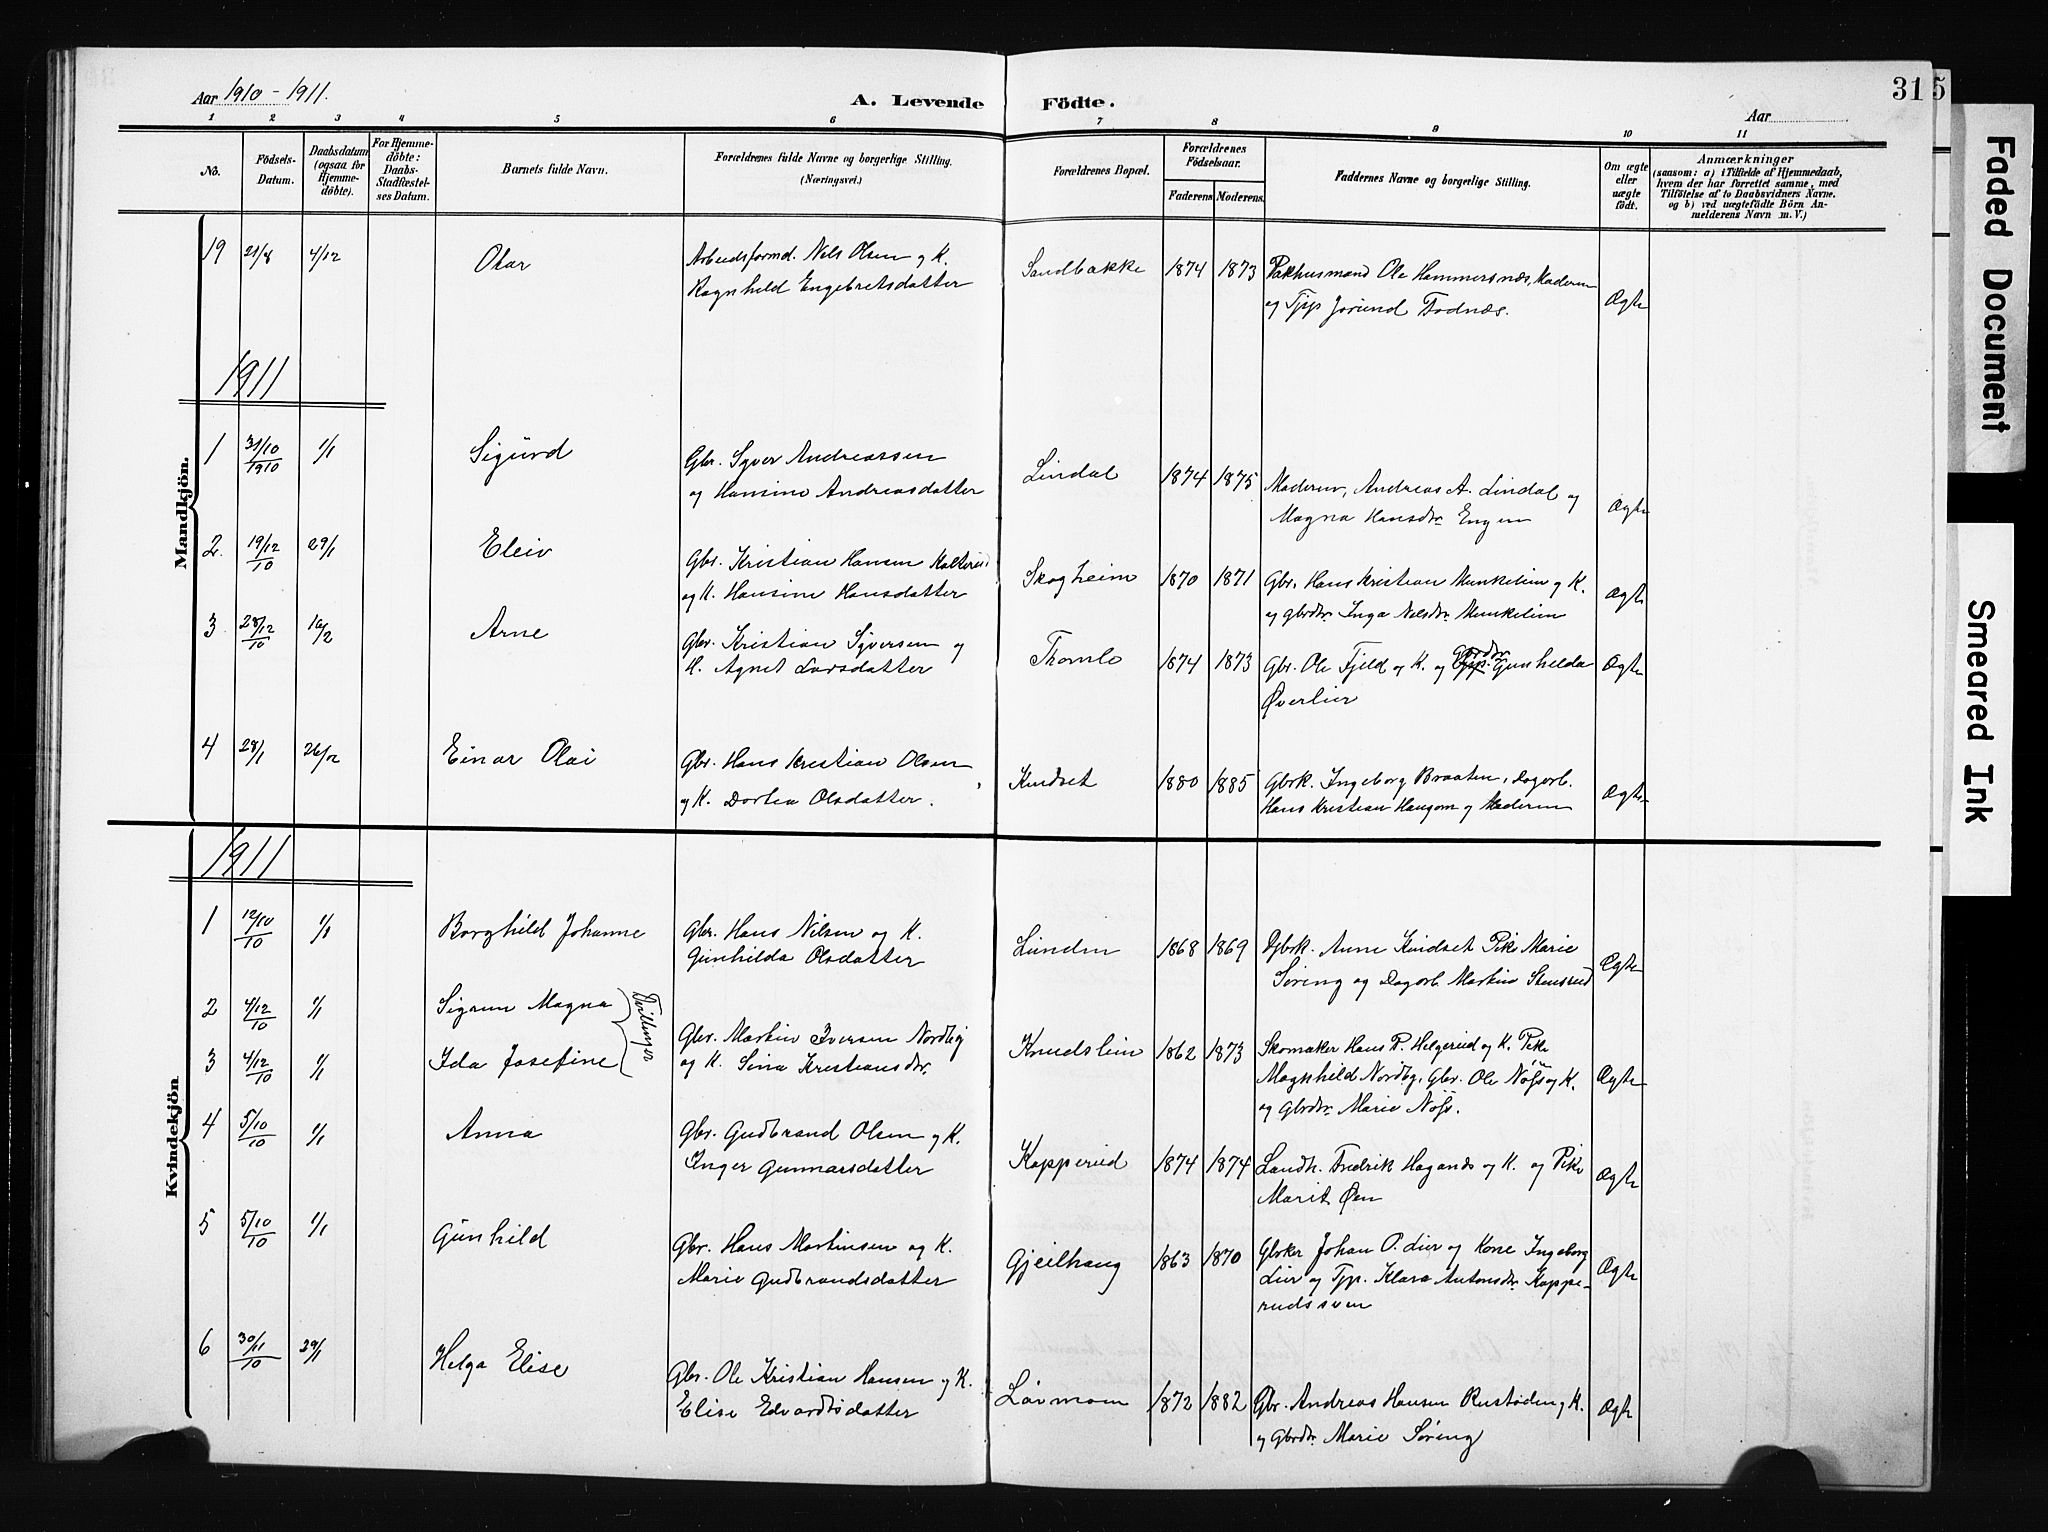 Aar 1910 - 1911.
A. Levende Födte.
Aar
31
5
1 2 3 4 5 6 7 8 9 10 11
No.
Födsels-Datum.
Daabsdatum (ogsaa for Hjemme-döbte).
For Hjemme-döbte: Daabs-Stadfæstel-ses Datum.
Barnets fulde Navn.
Forældrenes fulde Navne og borgerlige Stilling. (Næringsvei.)
Forældrenes Bopæl.
Forældrenes Födselsaar.
Faderens Moderens.
Faddernes Navne og borgerlige Stilling.
Om ægte eller uægte födt.
Anmærkninger
(saasom: a) i Tilfælde af Hjemmedaab,
hvem der har forrettet samme, med
Tilföielse af to Daabsvidners Navne.
og b) ved uægtefödte Börn An-
melderens Navn m. V.)
19 21/8 4/12 Olar Arbeidsformd. Nils Olsen og K. Sandbakke 1874 1873 Pakhusmand Ole Hammersnæs, Moderen
Ragnhild Engebretsdatter og Tjp Jørund Fodnæs. Ægte
1911
Mandkjön.
1 31/10 1910 1/1 Sigurd Gbr. Syver Andreassen Lindal 1874 1875 Moderen, Andreas A. Lindal og
og Hansine Andreasdatter Magna Hansdtr Engen Ægte
2. 19/12 10 29/1 Eleiv Gbr. Kristian Hansen Kolterud Skogheim 1870 1871 Gbr. Hans Kristian Munkelien og K.
og K. Hansine Hansdatter og gbrdtr Inga Nilsdtr Munkelien Ægte
3 28/12 10 12/2 Arne Gbr. Kristian Syversen og Thomle 1874 1873 Gbr. Ole Fjeld og K. og Gbrdtr Gunhilda
K. Agnet Larsdatter Øverlier Ægte
4 28/1 26/2 Einar Olai Gbr. Hans Kristian Olsen Kindset 1880 1885 Gbrk. Ingeborg Braaten, Dagarb.
og K. Dortea Olsdatter. Hans Kristian Haugom og Moderen Ægte
1911
Kvindekjön
1 12/10 10 1/1 Borghild Johanne Gbr. Hans Nilsen og K. Lunden 1868 1869 Gbrk. Anne Kindset Pike Marie
Gunhilda Olsdatter Søring og Dagarb. Martin Stensrud Ægte
2 4/12 10 1/1 Sigrun Magna Tvillinger
3 4/12 10 1/1 Ida Josefine Gbr. Martin Iversen Nordbig Knudslien 1862 1873 Skomaker Hans P. Helgerud og K. Pike
og K. Sina Kristiansdtr. Magnhild Nordbg, Gbr. Ole Nøss og K. Ægte
og Gbrdtr Marie Nøss.
4 5/10 10 1/1 Anna Gbr. Gudbrand Olsen og K. Kopperud 1874 1874 Landh. Fredrik Haganæs og K. og Pike
Inger Gunnarsdatter Marit Øen Ægte
5 5/10 10 1/1 Gunhild Gbr. Hans Martinsen og K. Gjeilhaug 1863 1870 Gbrker Johan O. Lier og Kone Ingeborg
Marie Gudbrandsdatter Lier og Tjp. Klara Antonsdtr Koppe-
rudssven Ægte
6 30/11 10 29/1 Helga Elise Gbr. Ole Kristian Hansen og K. Løvmoen 1872 1882 Gbr. Andreas Hansen Rustøden og K.
Elise Edvardtsdatter og Gbrdtr Marie Søring Ægte
Faded Document
Smeared Ink